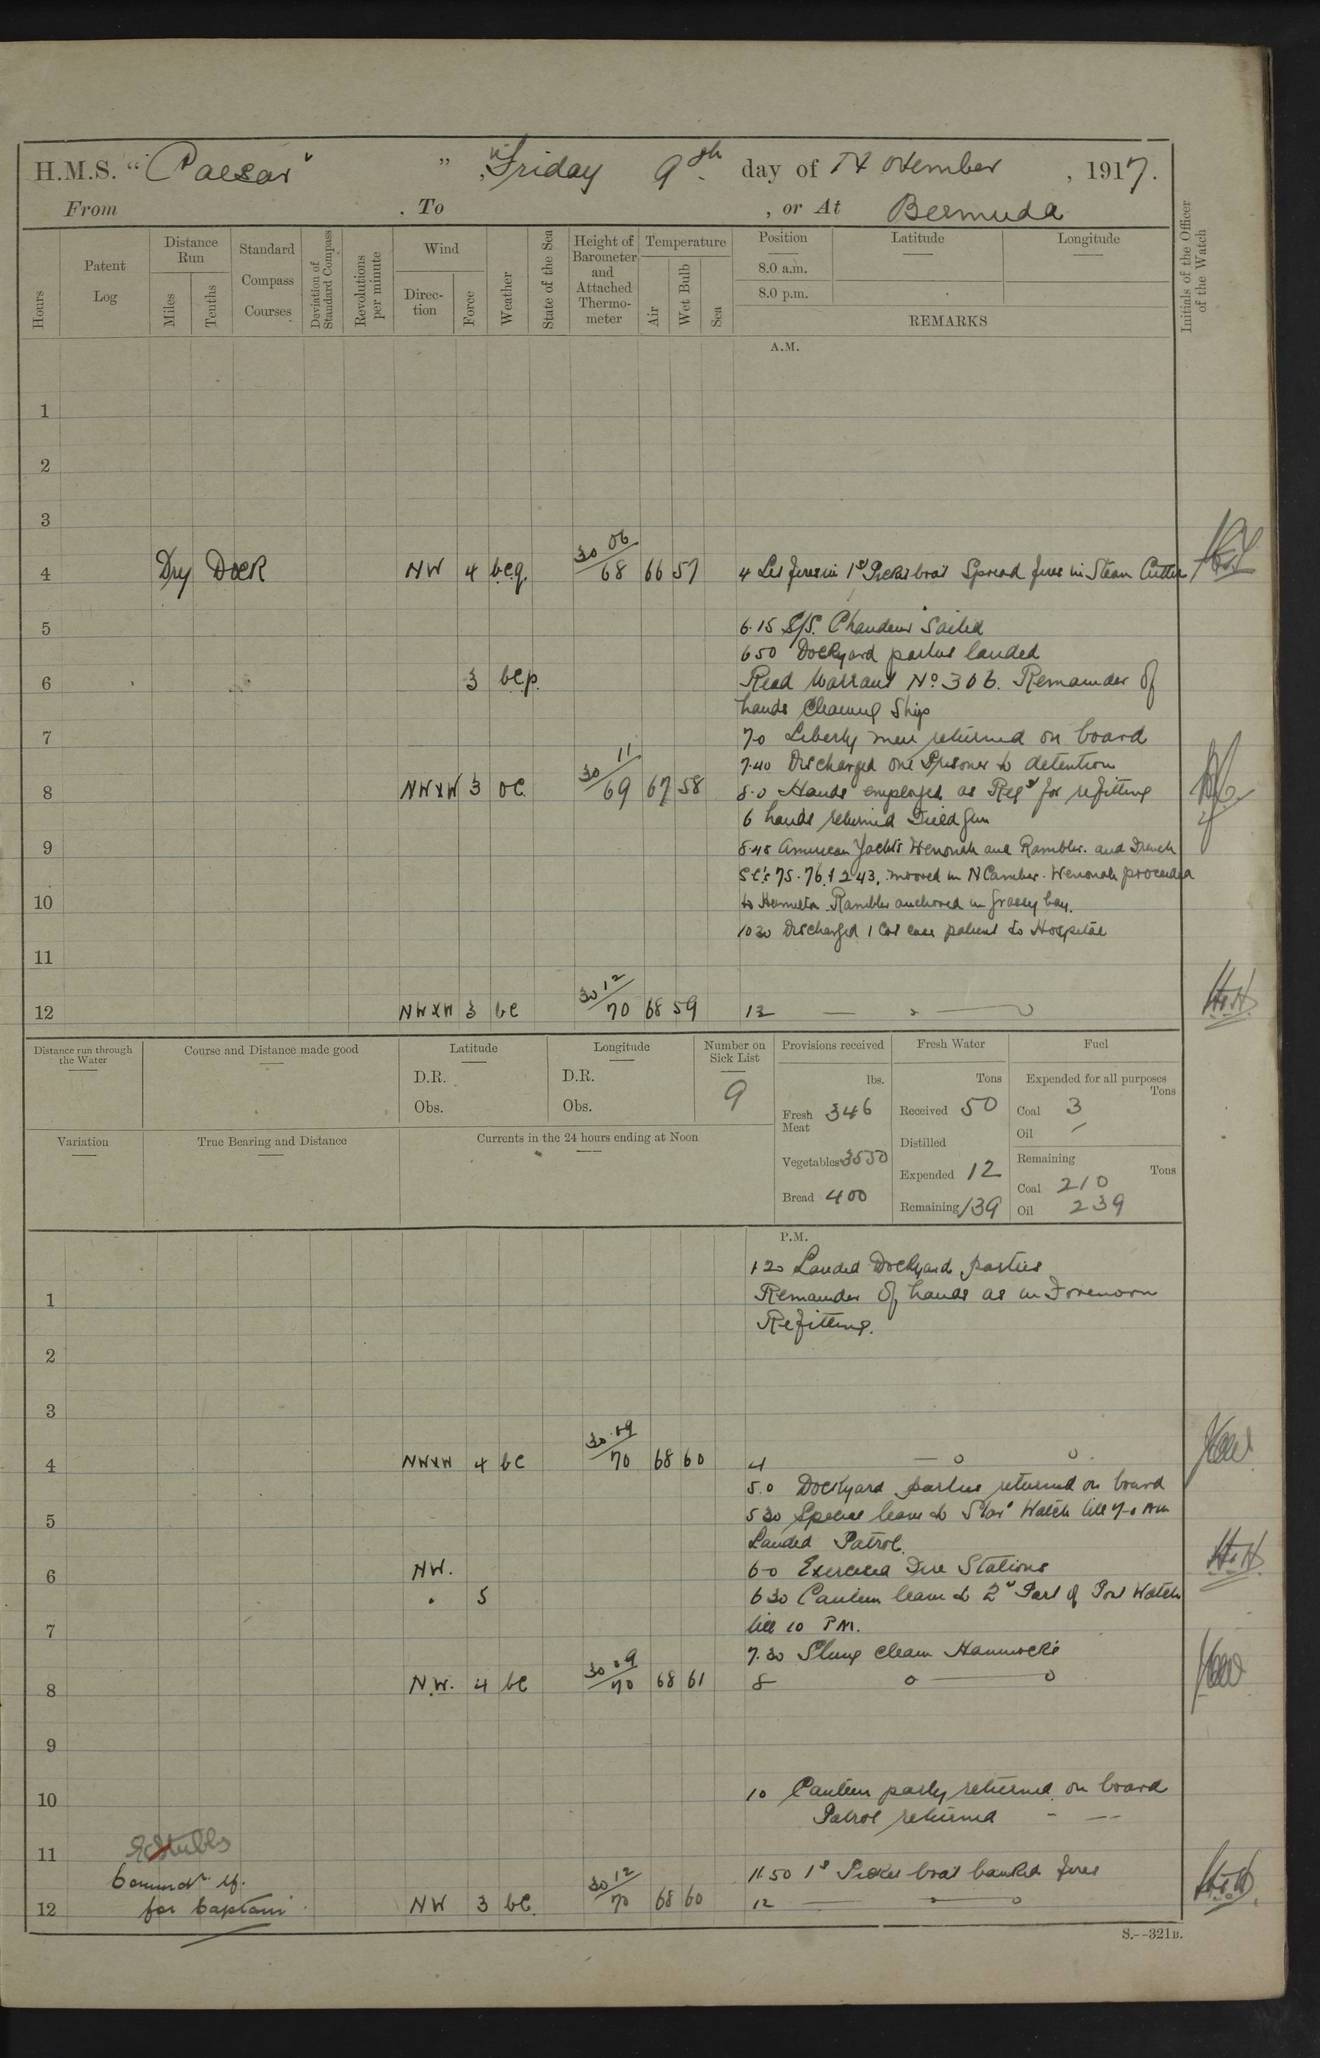 H.M.S. "Caesar" " , Friday 9th day of November , 1917.
From . To , or At Bermuda
Hours Patent Log Distance Run Miles Tenths Standard Compass Courses Deviation of Standard Compass Revolutions per minute Wind Direction Force Weather State of the Sea Height of Barometer and Attached Thermometer Temperature Air Wet Bulb Sea Position 8.0 a.m. 8.0 p.m. Latitude Longitude REMARKS Initials of the Officer of the Watch
A.M.
1
2
3
4 Dry Dock NW 4 bcq 30 06/68 66 57 4 Lit fires in 1st Picket boat Spread fires in Steam Cutter
5 6.15 S/S. Sailed
650 Dockyard parties landed
6 3 bcp. Read Warrant No 306. Remainder of
hands Cleaning Ship
7 7.0 Liberty men returned on board
7.40 Discharged one Prisoner to detention
8 NWxW 3 oc 30 11/69 67 58 8.0 Hands employed as Reqd for refitting
6 hands returned Field Gun
9 8.45 American Yachts Wenonah and Rambler. and French
SC's 75. 76. & 243, moored in N Camber. Wenonah proceeded
10 to Hamilton Rambler anchored in Grassy bay.
1030 Discharged 1 Cot case patient to Hospital
11
12 NWxW 3 bc 30 12/70 68 59 12 H.H.
Distance run through the Water Course and Distance made good Latitude D.R. Obs. Longitude D.R. Obs. Number on Sick List 9
Variation True Bearing and Distance Currents in the 24 hours ending at Noon
Provisions received lbs. Fresh Meat 346 Vegetables 3550 Bread 400
Fresh Water Tons Received 50 Distilled Expended 12 Remaining 139
Fuel Expended for all purposes Tons Coal 3 Oil - Remaining Tons Coal 210 Oil 239
P.M.
120 Landed Dockyard parties
1 Remainder of hands as in Forenoon
Refitting.
2
3
4 NWxW 4 bc 30.09/70 68 60 4
5.0 Dockyard parties returned on board
5 530 Special leave to Star Watch till 7-0 AM
Landed Patrol.
6 NW. 6-0 Exercised Fire Stations
" 5 630 Canteen leave to 2nd Part of Port Watch
7 till 10 PM.
7.30 Slung clean Hammocks
8 N.W. 4 bc 30.09/70 68 61 8
9
10 10 Canteen party returned on board
Patrol returned " "
11
11.50 1st Picket boat banked fires
Commdr
12 for Captain NW 3 bc. 30 12/70 68 60 12 H.H.
S.--321B.